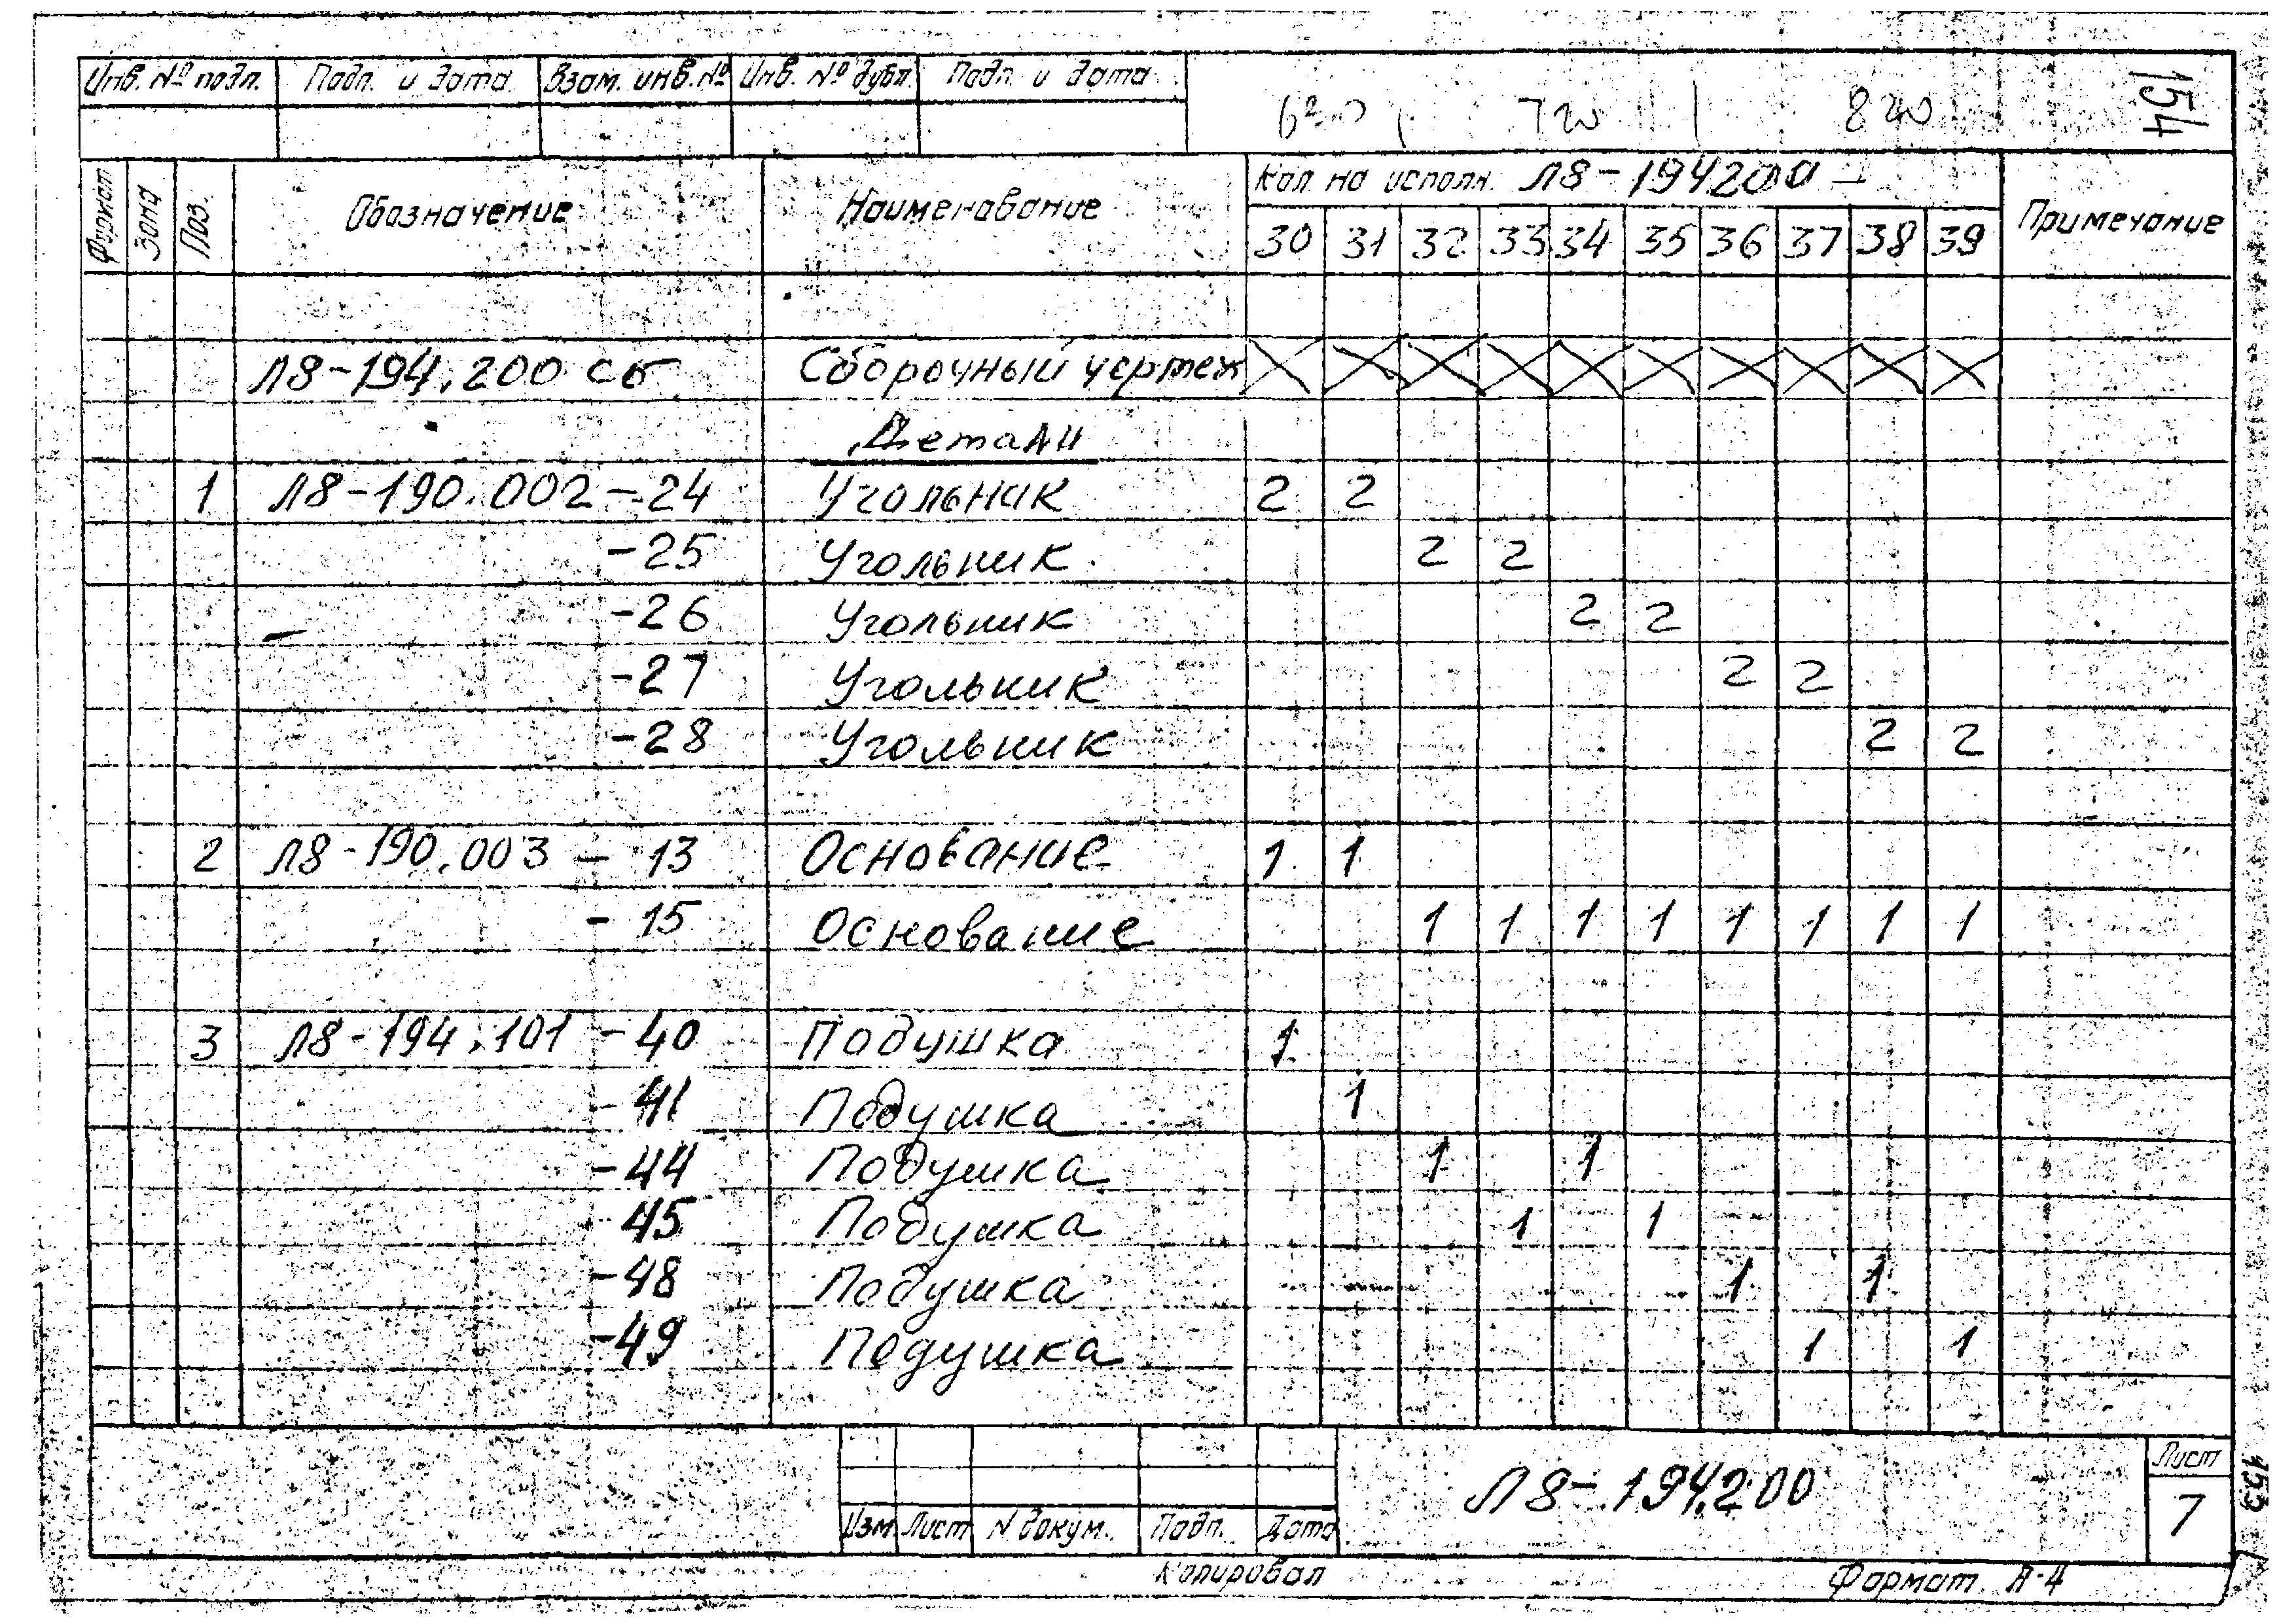 Инв. № подл. Подп. и дата Взам. инв. № Инв. № дубл. Подп. и дата
720 820
154
Формат Зона Поз. Обозначение Наименование Кол. на исполн. Л8-194200- Примечание
30 31 32 33 34 35 36 37 38 39
Л8-194.200 сб Сборочный чертеж X X X X X X X X X X
Детали
1 Л8-190.002-24 Угольник 2 2
-25 Угольник 2 2
-26 Угольник 2 2
-27 Угольник 2 2
-28 Угольник 2 2
2 Л8-190.003-13 Основание 1 1
-15 Основание 1 1 1 1 1 1 1 1
3 Л8-194.101-40 Подушка 1
-41 Подушка 1
-44 Подушка 1 1
-45 Подушка 1 1
-48 Подушка 1 1
-49 Подушка 1 1
Изм Лист N докум. Подп. Дата
Л8-194.200
Лист
7
153
Копировал Формат А-4